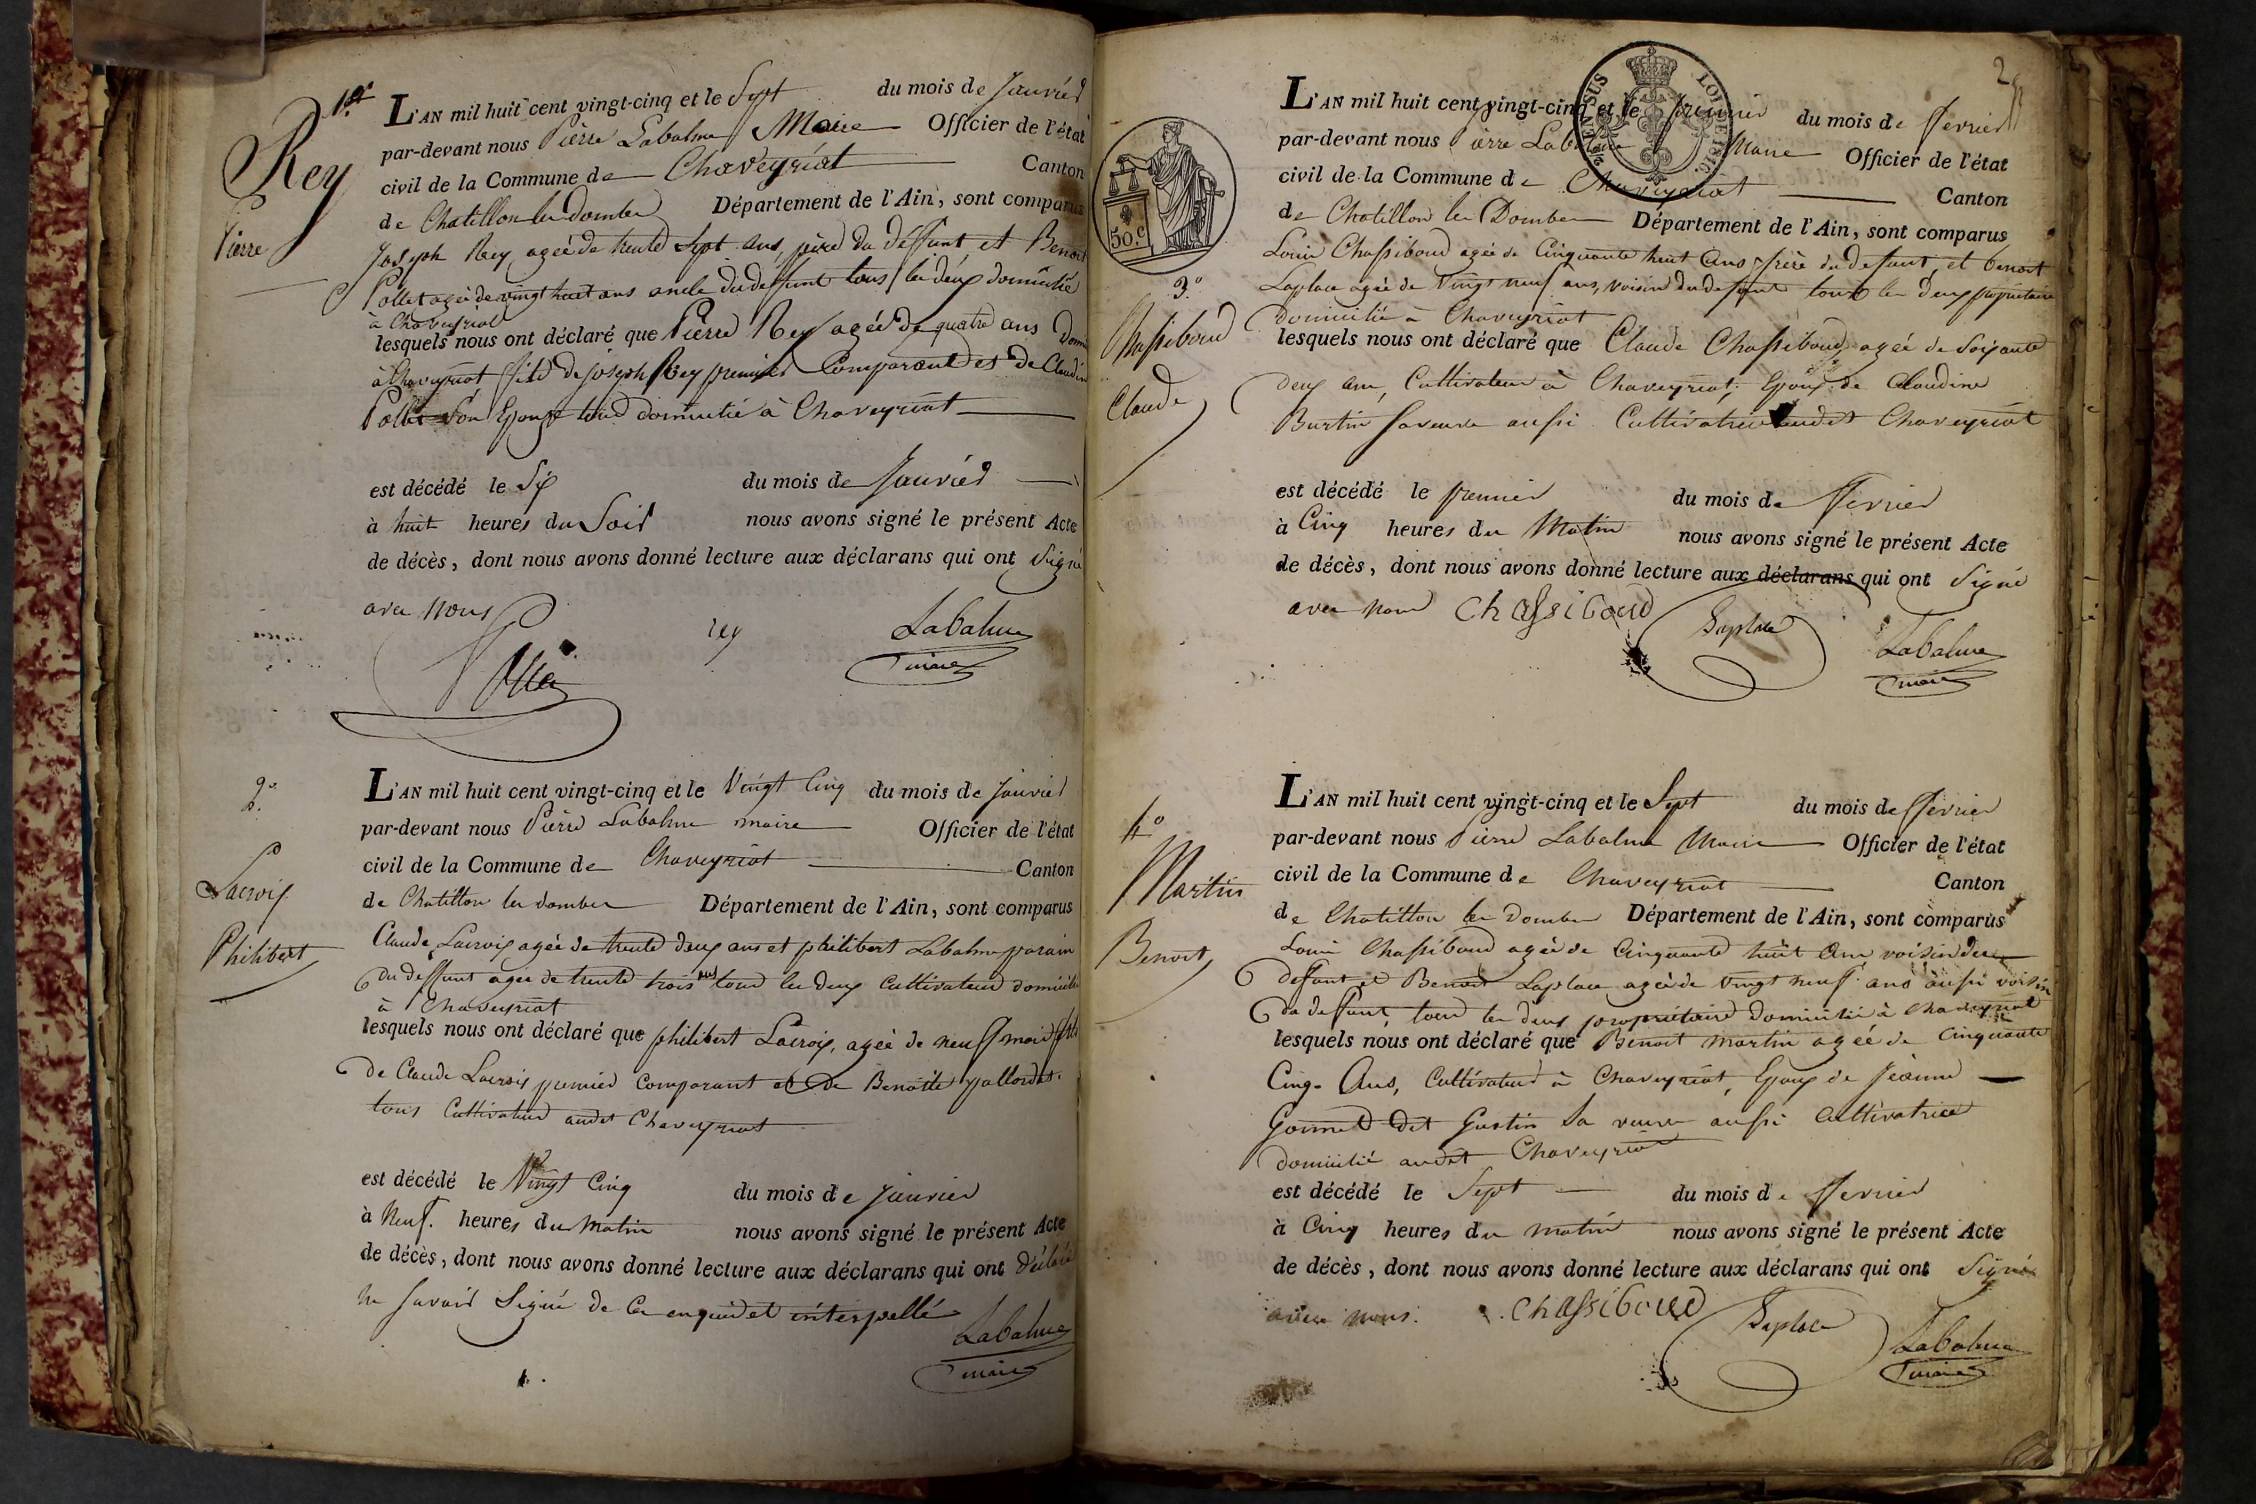 1er
Rey
Pierre
L'AN mil huit cent vingt-cinq et le Sept du mois de Janvier
par-devant nous Pierre Labalme Maire Officier de l'état
civil de la Commune de Chaveyriat Canton
de Chatillon les Dombes Département de l'Ain, sont comparus
Joseph Rey agée de trente Sept ans, père du deffunt, et Benoit
Pollet agée de vingt huit ans oncle du deffunt tous les deux domicilié
à Chaveyriat
lesquels nous ont déclaré que Pierre Rey agée de quatre ans
à Chaveyriat fils de joseph Rey premier Comparant et de Claudine
Pollet Son Epouse tous domicilié à Chaveyriat
est décédé le Six du mois de Janvier
à huit heures du Soir nous avons signé le présent Acte
de décès, dont nous avons donné lecture aux déclarans qui ont Signé
avec nous
rey
Labalme
maire
2°
Lacroix
Philibert
L'AN mil huit cent vingt-cinq et le Vingt Cinq du mois de Janvier
par-devant nous Pierre Labalme maire Officier de l'état
civil de la Commune de Chaveyriat Canton
de Chatillon les dombes Département de l'Ain, sont comparus
Claude Lacroix agée de trente deux ans et philibert Labalme parain
du deffunt agée de trente trois ans tous les deux Cultivateur domicilié
à Chaveyriat
lesquels nous ont déclaré que philibert Lacroix, agée de neuf mois fils
de Claude Lacroix premier Comparant et de Benoite
tous Cultivateur audit Chaveyriat
est décédé le Vingt Cinq du mois de Janvier
à Neuf. heures du Matin nous avons signé le présent Acte
de décès, dont nous avons donné lecture aux déclarans qui ont déclaré
ne savoir Signé de Ce enquis et interpellé
Labalme
maire
2
SUS
LOI DE 1816.
50.c
3°
Chassiboud
Claude
L'AN mil huit cent vingt-cinq et le premier du mois de fevrier
par-devant nous Pierre Labalme Maire Officier de l'état
civil de la Commune de Chaveyriat Canton
de Chatillon les Dombes Département de l'Ain, sont comparus
Louis Chassiboud agée de Cinquante huit Ans frère du defunt, et benoit
Laplace agée de Vingt neuf ans, voisin du defunt tous les deux propriétaire
Domicilié à Chaveyriat
lesquels nous ont déclaré que Claude Chassiboud, agée de Soixante
deux ans, Cultivateur à Chaveyriat, Epoux de Claudine
Burtin sa veuve aussi Cultivatrice audit Chaveyriat
est décédé le premier du mois de fevrier
à Cinq heures du Matin nous avons signé le présent Acte
de décès, dont nous avons donné lecture aux déclarans qui ont Signé
avec nous Chassiboud
Laplace
Labalme
maire
4°
Martin
Benoit
L'AN mil huit cent vingt-cinq et le Sept du mois de fevrier
par-devant nous Pierre Labalme Maire Officier de l'état
civil de la Commune de Chaveyriat Canton
de Chatillon les Dombes Département de l'Ain, sont comparus
Louis Chassiboud agée de Cinquante huit Ans voisin du
defunt et Benoit Laplace agée de vingt neuf ans aussi voisin
du deffunt, tous les deux propriétaire domicilié à Chaveyriat
lesquels nous ont déclaré que Benoit Martin agée de Cinquante
Cinq Ans, Cultivateur à Chaveyriat, Epoux de Jeanne
dit Gustin Sa veuve aussi Cultivatrice
domicilié audit Chaveyriat
est décédé le Sept du mois de fevrier
à Cinq heures du matin nous avons signé le présent Acte
de décès, dont nous avons donné lecture aux déclarans qui ont Signé
avec nous. Chassiboud
Laplace
Labalme
maire